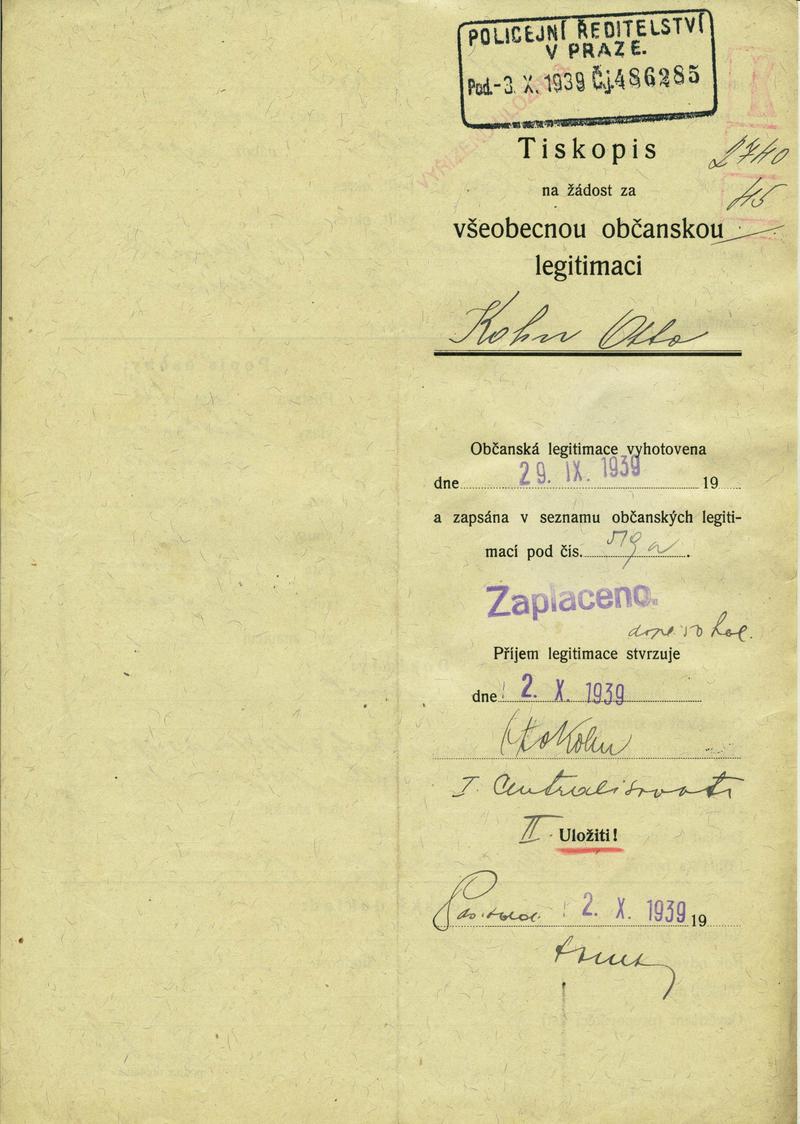 POLICEJNÍ ŘEDITELSTVÍ
V PRAZE.
Pod.-3. X. 1939 Čj.486285
K
Tiskopis
2740
na žádost za
45
všeobecnou občanskou
legitimaci
Kohn Otto
Občanská legitimace vyhotovena
dne 29. IX. 1939 19
a zapsána v seznamu občanských legiti-
mací pod čís.
Zaplaceno.
Příjem legitimace stvrzuje
dne 2. X. 1939
Otto Kohn
I. Centralisovati
II. Uložiti!
2. X. 1939 19